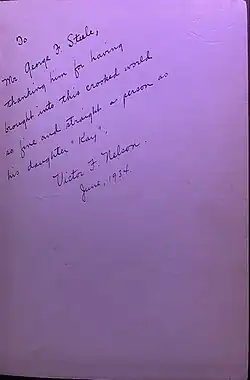 To
Mr. George F. Steele,
thanking him for having
brought into this crooked world
as fine and straight a person as
his daughter "Kay".
Victor F. Nelson.
June, 1934.